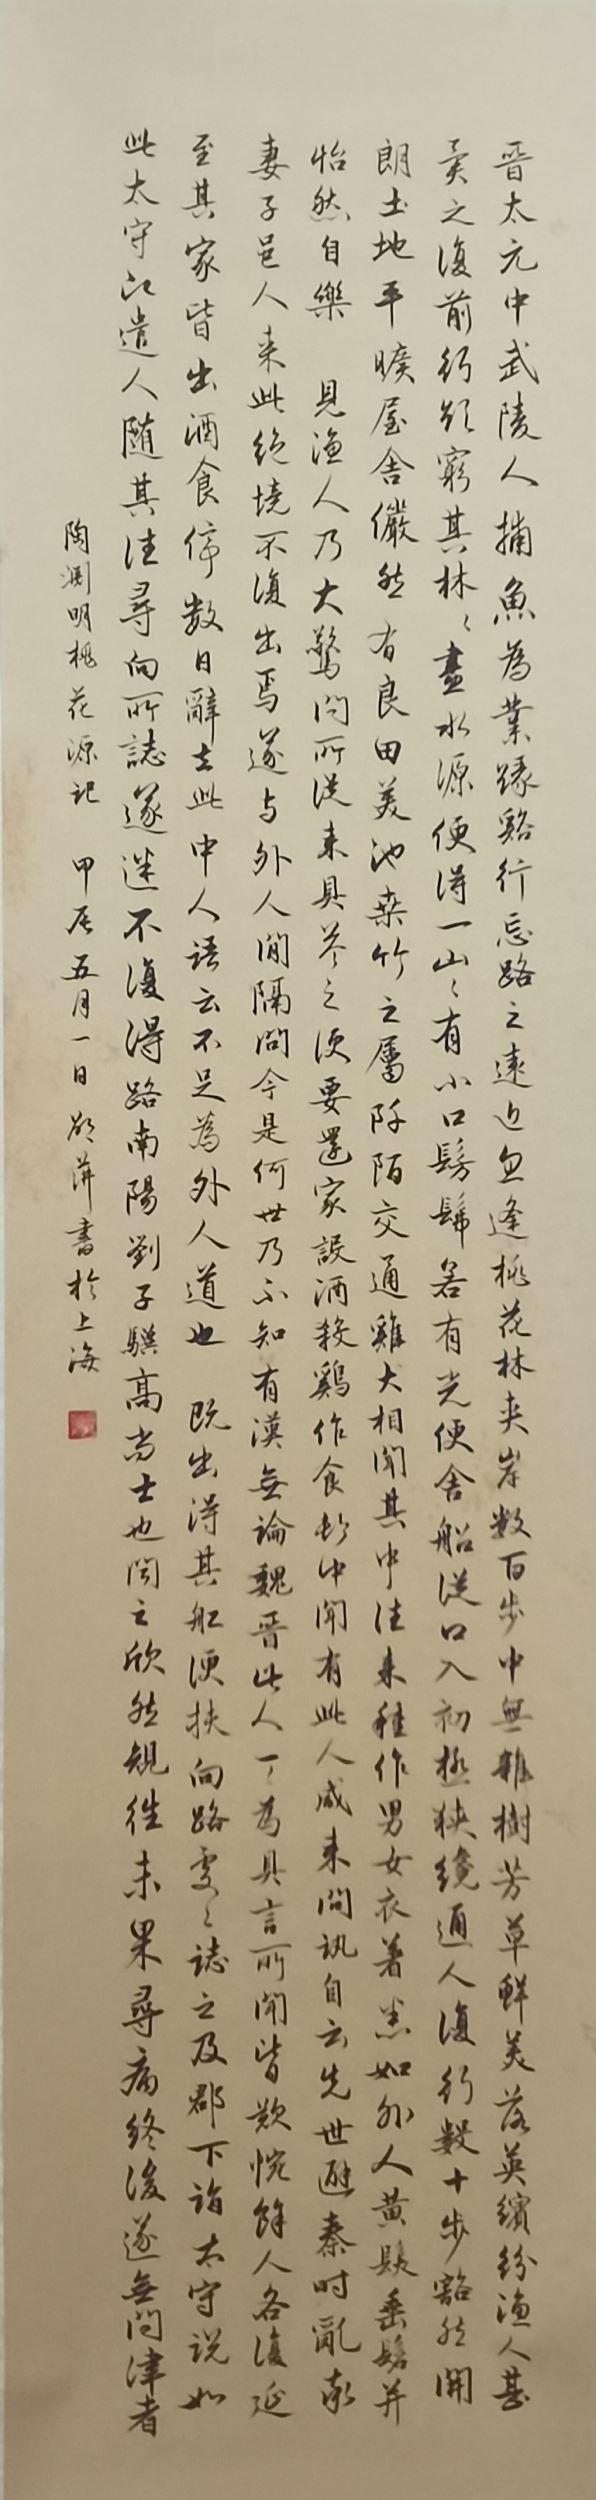 晉太元中武陵人捕魚為業緣谿行忘路之遠近忽逢桃花林夾岸數百步中無雜樹芳草鮮美落英繽紛漁人甚
異之復前行欲窮其林〻盡水源便得一山〻有小口髣髴若有光便舍船從口入初極狹纔通人復行數十步豁然開
朗土地平曠屋舍儼然有良田美池桑竹之屬阡陌交通雞犬相聞其中往來種作男女衣著悉如外人黃髮垂髫并
怡然自樂 見漁人乃大驚問所從來具答之便要還家設酒殺鷄作食村中聞有此人咸來問訊自云先世避秦時亂率
妻子邑人来此絕境不復出焉遂与外人間隔問今是何世乃不知有漢無論魏晉此人一〻為具言所聞皆歎惋餘人各復延
至其家皆出酒食停數日辭去此中人語云不足為外人道也 既出得其船便扶向路處〻誌之及郡下詣太守說如
此太守即遣人隨其往尋向所誌遂迷不復得路南陽劉子驥高尚士也聞之欣然規往未果尋病終後遂無問津者
陶淵明桃花源記 甲辰五月一日 萍書於上海